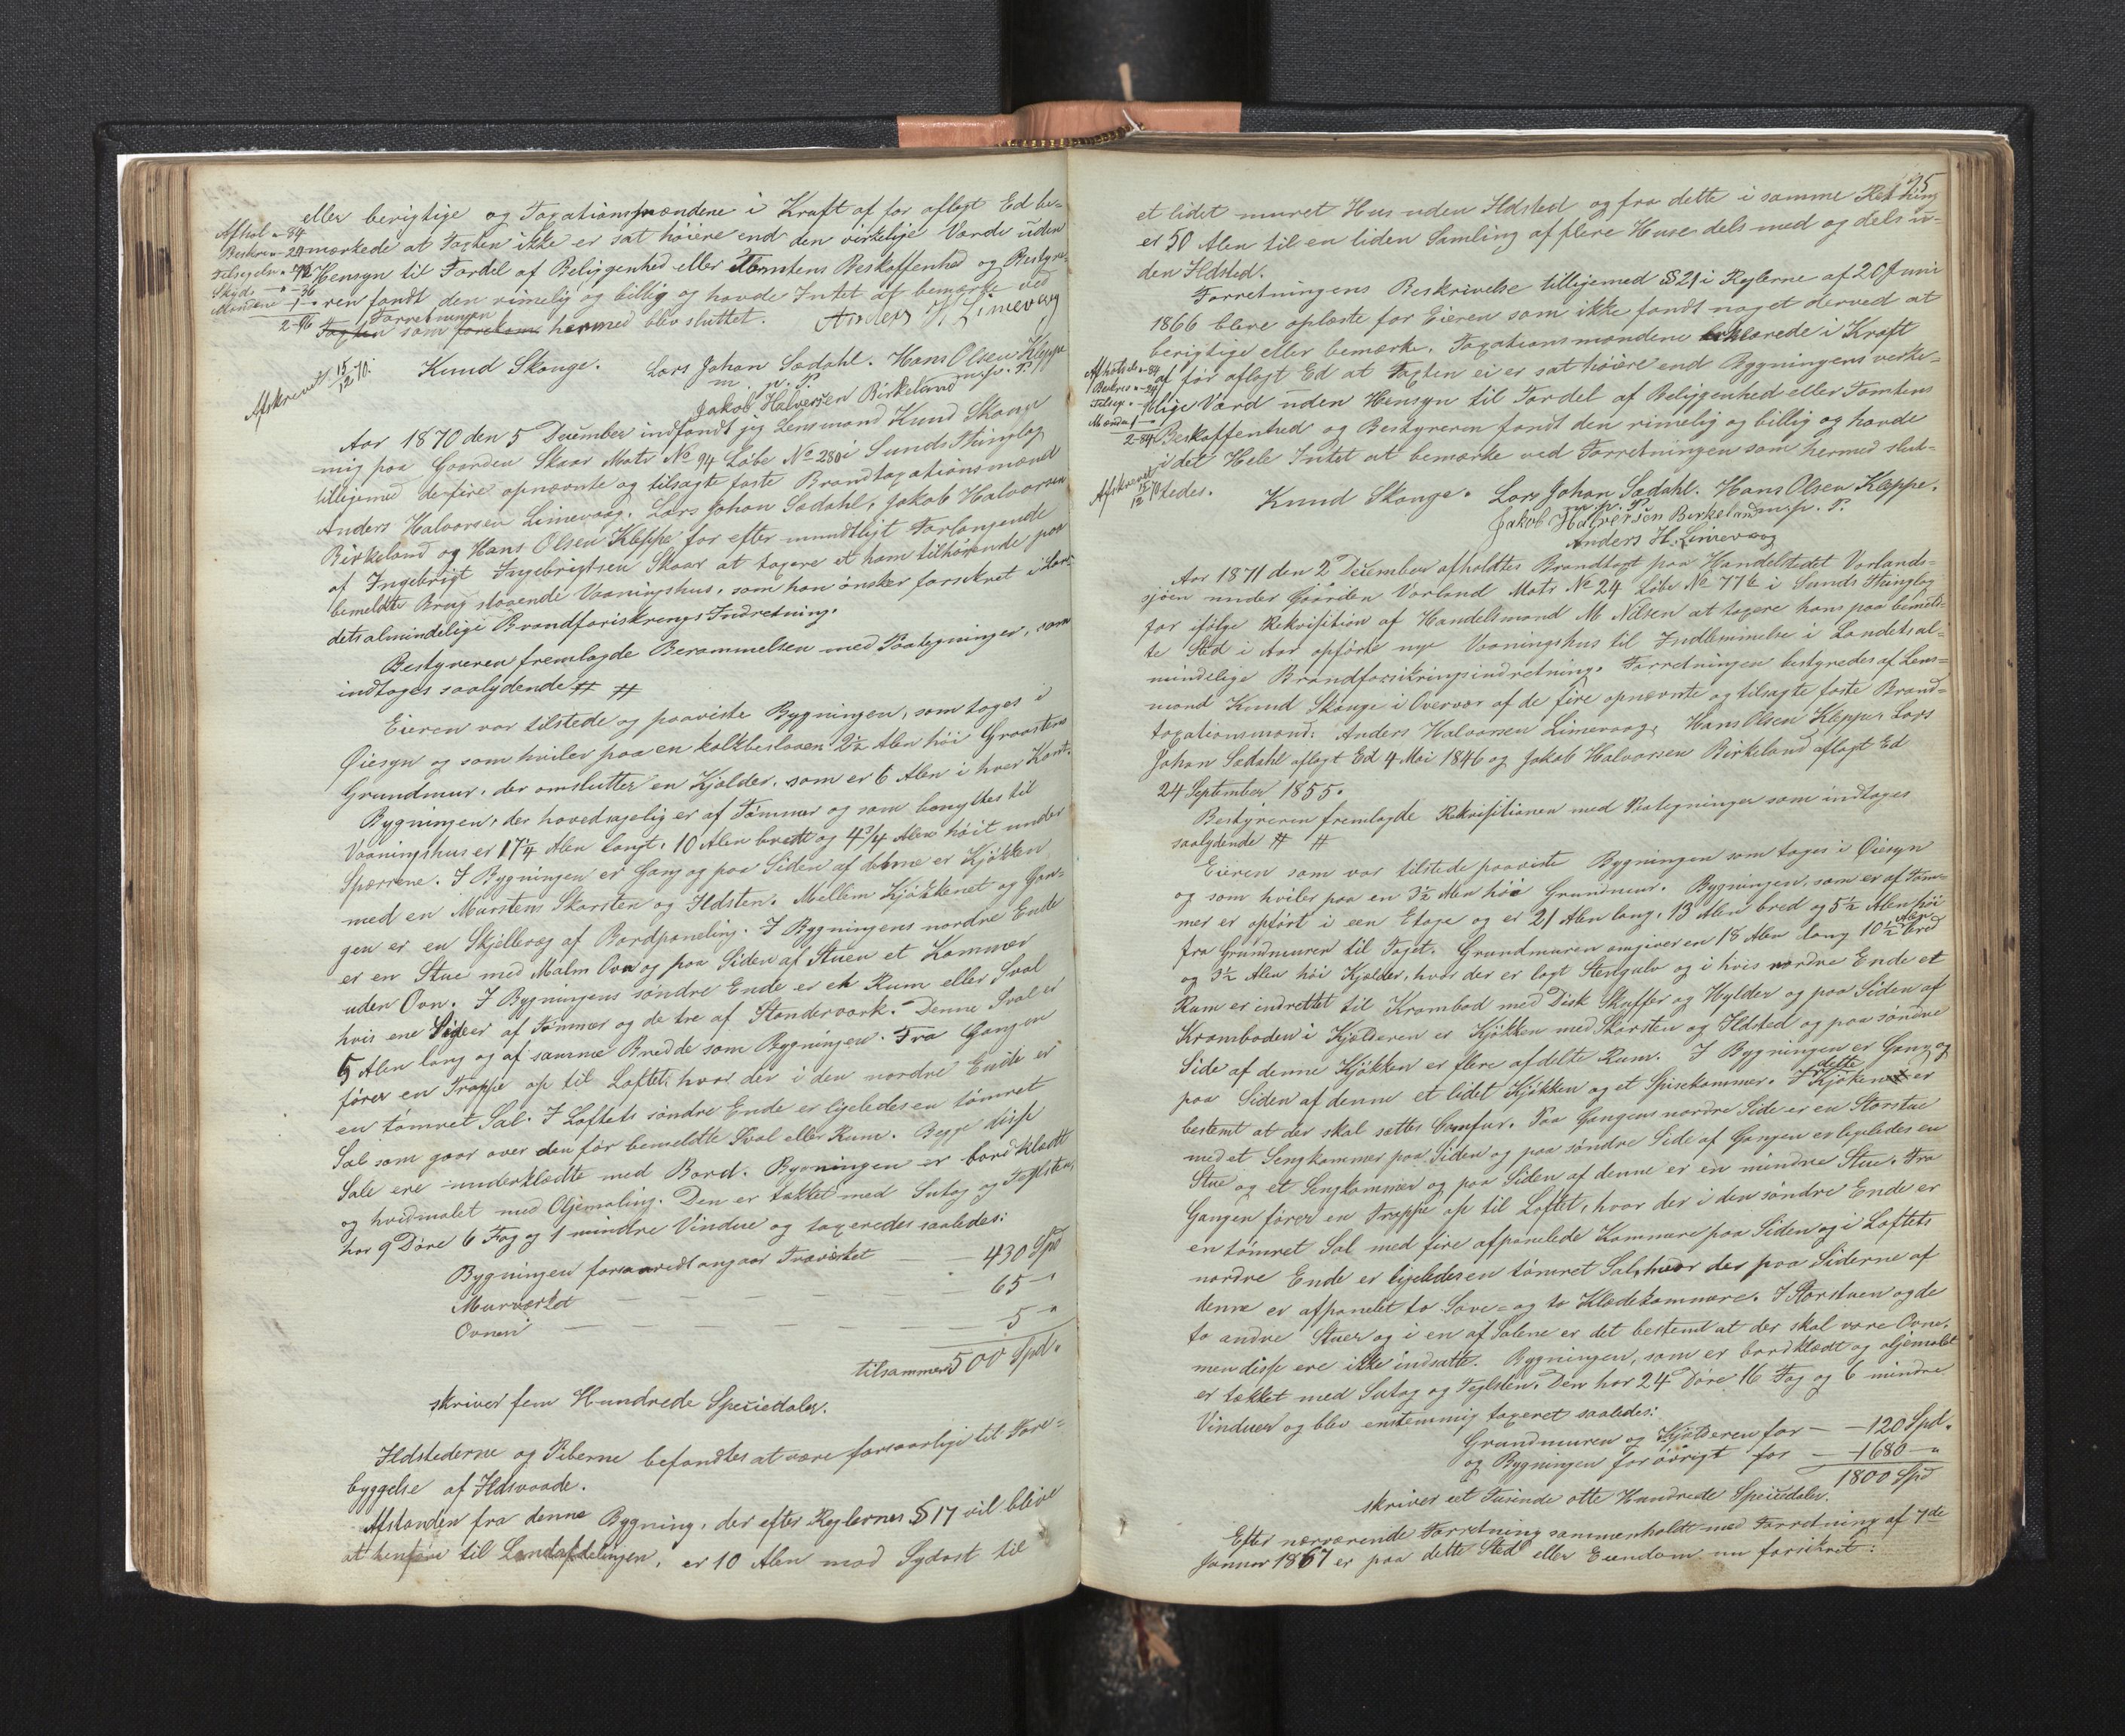 eller berigtige og Taxationsmændene i Kraft af før aflagt Ed be-
Afhol " 84
Beskriv " 24 mærkede at Taxten ikke er sat høiere end den virkelige Værdi uden
Tilsigels " 72 Hensyn til Fordel af Beliggenhed eller Tomtens Beskaffenhed og Bestyre-
Skyds " - 36
Mændene 1 - " ren fandt den rimelig og billig og havde Intet at bemærke ved
2 - 96 Forretningen
Taxten som hermed blev sluttet. Anders H Limevaag
Afskrevet 15/12 70.
Knud Skauge. Lars Johan Sædahl. Hans Olsen Kleppe
m. p. P. m. p. P.
Jakob Halversen Birkeland
Aar 1870 den 5 December indfandt jeg Lensmand Knud Skauge
mig paa Gaarden Skaar Matr No 94 Løbe No 280 i Sunds Thinglag
tilligemed de fire opnævnte og tilsagte faste Brandtaxationsmænd
Anders Halvorsen Limevaag, Lars Johan Sædahl, Jakob Halvorsen
Birkeland og Hans Olsen Kleppe for efter mundtligt Forlangende
af Ingebrigt Ingebrigtsen Skaar at taxere et ham tilhørende paa
bemeldte Brug staaende Vaaningshus, som han ønsker forsikret i Lan-
dets almindelige Brandforsikrings Indretning.
Bestyreren fremlagde Berammelsen med Paategninger, som
indtages saalydende # #
Eieren var tilstede og paaviste Bygningen, som toges i
Øiesyn og som hviler paa en kalkbeslaaen 2½ Alen høi Graastens
Grundmur, der omslutter en Kjelder, som er 6 Alen i hver Kant.
Bygningen, der hovedsagelig er af Tømmer og som benyttes til
Vaaningshus er 17¼ Alen langt, 10 Alen bredt og 4¾ Alen høit under
Sperrene. I Bygningen er Gang og paa Siden af denne er Kjøkken
med en Murstens Skorsten og Ildsten. Mellem Kjøkkenet og Gan-
gen er en Skjellevæg af Bordpaneling. I Bygningens nordre Ende
er en Stue med Malm Ovn og paa Siden af Stuen et Kammer
uden Ovn. I Bygningens søndre Ende er et Rum eller Sval
hvis ene Side er af Tømmer og de tre af Standerværk. Denne Sval er
5 Alen lang og af samme Bredde som Bygningen. Fra Gangen
fører en Trappe op til Loftet, hvor der i den nordre Ende er
en tømret Sal. I Loftets søndre Ende er ligeledes en tømret
Sal som gaar over den før bemeldte Sval eller Rum. Begge disse
Sale ere underklædte med Bord. Bygningen er bordklædt
og hvidmalet med Oljemaling. Den er tækket med Sutag og Teglsten,
har 9 Døre 6 Fag og 1 mindre Vindue og taxeredes saaledes:
Bygningen forsaavidt angaar Træværket — 430 Spd
Murværket — — — — — 65 — "
Ovnen — — — — — 5 "
tilsammen 500 Spd.
skriver fem Hundrede Speciedaler.
Ildstederne og Piberne befandtes at være forsvarlige til Fore-
byggelse af Ildsvaade.
Afstanden fra denne Bygning, der efter Reglernes § 17 vil blive
at henføre til Landafdelingen, er 10 Alen mod Sydost til
95
et lidet muret Hus uden Ildsted og fra dette i samme Retning
er 50 Alen til en liden Samling af flere Huse dels med og dels u-
den Ildsted.
Forretningens Beskrivelse tilligemed § 21 i Reglerne af 20 Juni
1866 bleve oplæste for Eieren som ikke fandt noget derved at
berigtige eller bemærke. Taxationsmændene erklærede i Kraft
Afholdelse " 84
Beskriv " - 24 af før aflagt Ed at Taxten ei er sat høiere end Bygningens virke-
Tilsig. " -
Mænd 1 - " lige Værd uden Hensyn til Fordel af Beliggenhed eller Tomtens
2 - 84 Beskaffenhed og Bestyreren fandt den rimelig og billig og havde
i det Hele Intet at bemærke ved Forretningen som hermed slut-
Afskrevet 15/12 70
tedes. Knud Skauge. Lars Johan Sædahl. Hans Olsen Kleppe.
m. p. P.
Jakob Halversen Birkeland m. p. P.
Anders H. Limevaag
Aar 1871 den 2 December afholdtes Brandtaxt paa Handelstedet Vorlands-
sjøen under Gaarden Vorland Matr No 24 Løbe No 77b i Sunds Thinglag
for ifølge Rekvisition af Handelsmand M Nilsen at taxere hans paa bemeld-
te Sted i Aar opførte nye Vaaningshus til Indlemmelse i Landets al-
mindelige Brandforsikringsindretning. Forretningen bestyredes af Lens-
mand Knud Skauge i Overvær af de fire opnævnte og tilsagte faste Brand-
taxationsmænd: Anders Halvorsen Limevaag, Hans Olsen Kleppe, Lars
Johan Sædahl aflagt Ed 4 Mai 1846 og Jakob Halvorsen Birkeland aflagt Ed
24 September 1855.
Bestyreren fremlagde Rekvisitionen med Paategninger som indtages
saalydende # #
Eieren som var tilstede paaviste Bygningen som toges i Øiesyn
og som hviler paa en 3½ Alen høi Grundmur. Bygningen, som er af Tøm-
mer er opført i een Etage og er 21 Alen lang, 13 Alen bred og 5½ Alen høi
fra Grundmuren til Taget. Grundmuren omgiver en 18 Alen lang 10½ Alen bred
og 3½ Alen høi Kjelder, hvor der er lagt Stengulv og i hvis nordre Ende et
Rum er indrettet til Krambod med Disk Skuffer og Hylder og paa Siden af
Kramboden i Kjelderen er Kjøkken med Skorsten og Ildsted og paa søndre
Side af denne Kjøkken er flere afdelte Rum. I Bygningen er Gang og
paa Siden af denne et lidet Kjøkken og et Spisekammer. I dette Kjøken er
bestemt at der skal sættes Komfur. Paa Gangens nordre Side er en Storstue
med et Sengkammer paa Siden og paa søndre Side af Gangen er ligeledes en
Stue og et Sengkammer og paa Siden af denne er en mindre Stue. Fra
Gangen fører en Trappe op til Loftet, hvor der i den søndre Ende er
en tømret Sal med fire afpanelede Kammere paa Siden og i Loftets
nordre Ende er ligeledes en tømret Sal, hvor der paa Siderne af
denne er afpanelet to Sove- og to Klædekammere. I Storstuen og de
to andre Stuer og i en af Salene er det bestemt at der skal være Ovne,
men disse ere ikke indsatte. Bygningen, som er bordklædt og oljemalet
er tækket med Sutag og Teglsten. Den har 24 Døre 16 Fag og 6 mindre
Vinduer og blev enstemmig taxeret saaledes:
Grundmuren og Kjelderen for — — 120 Spd.
og Bygningen forøvrigt for — — 1680 — "
1800 Spd
skriver eet Tusinde otte Hundrede Speciedaler.
Efter nærværende Forretning sammenholdt med Forretning af 7de
Januar 1867 er paa dette Sted eller Eiendom nu forsikret: